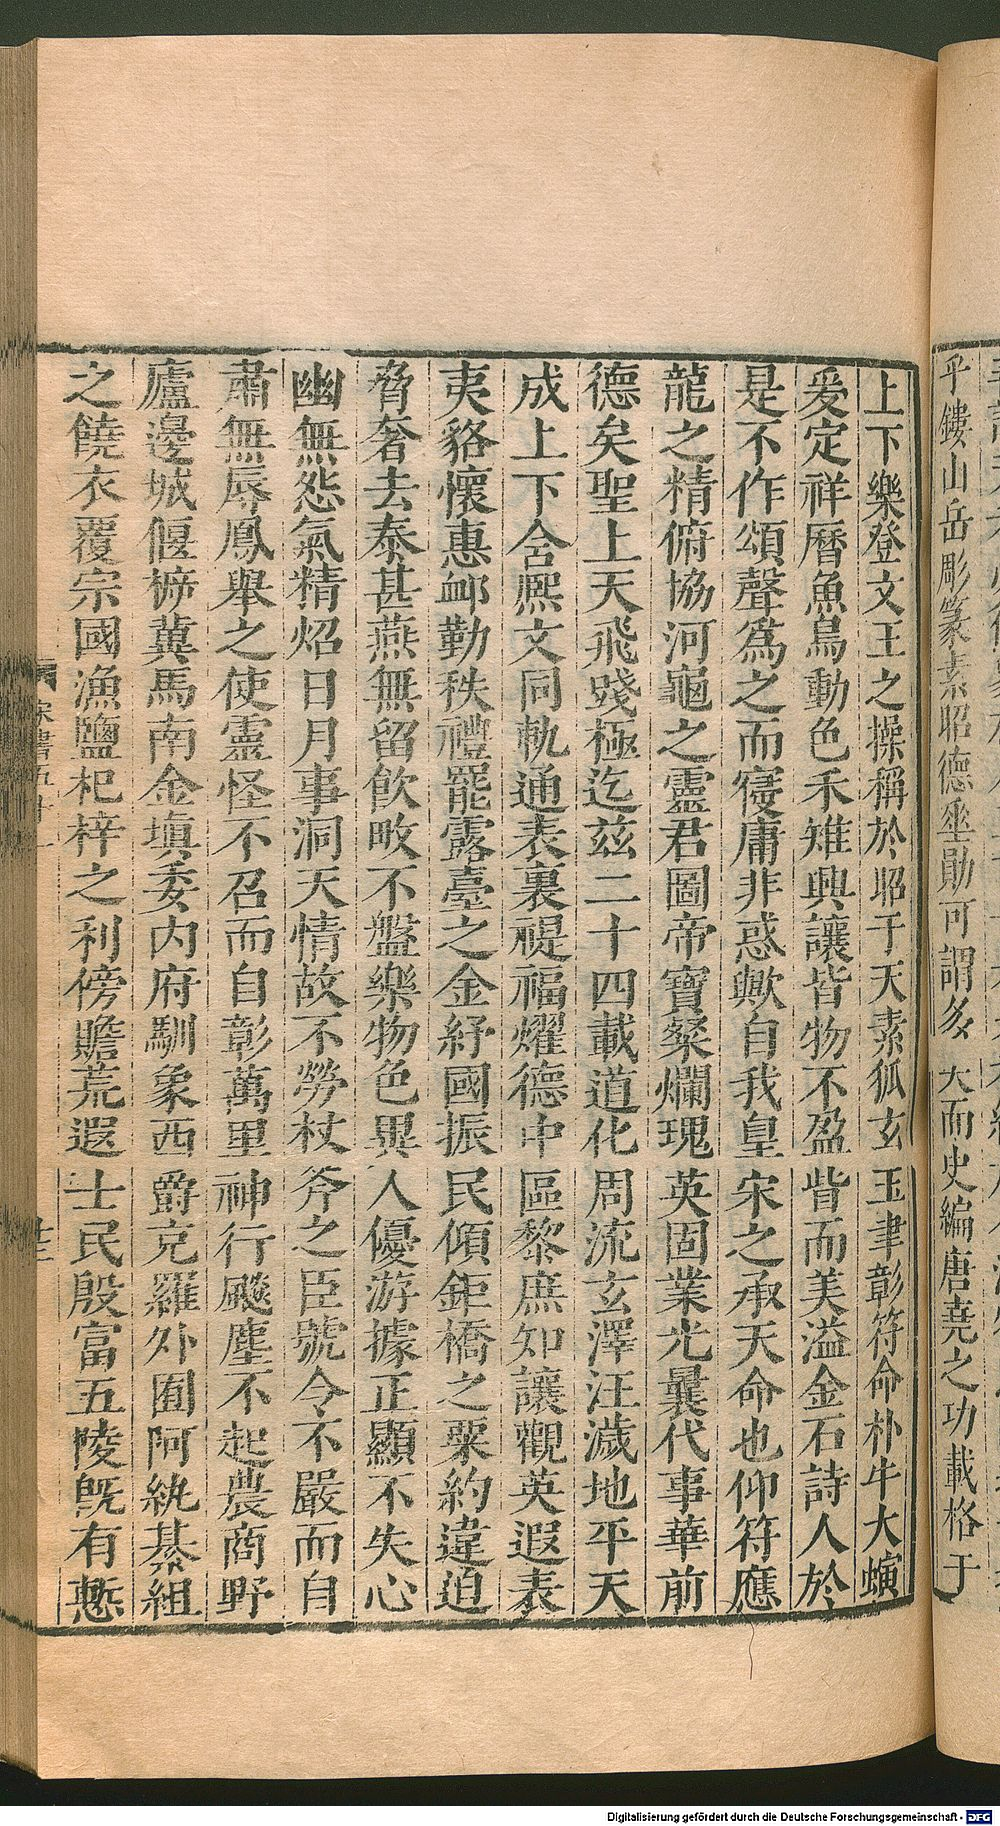 平鏤山岳彫篆素昭德垂勛可謂多 大而史編唐堯之功載格于
上下樂登文王之操稱於昭于天素狐玄玉聿彰符命朴牛大螾
爰定祥曆魚鳥動色禾雉興讓皆物不盈眥而美溢金石詩人於
是不作頌聲爲之而寑庸非惑歟自我皇宋之承天命也仰符應
龍之精俯協河龜之靈君圖帝寶粲爛瑰英固業光曩代事華前
德矣聖上天飛踐極迄茲二十四載道化周流玄澤汪濊地平天
成上下含熙文同軌通表裏禔福耀德中區黎庶知讓觀英遐表
夷貉懷惠䘏勤秩禮罷露臺之金紓國振民傾鉅橋之粟約違迫
脅奢去泰甚燕無留飲畋不盤樂物色異人優游據正顯不失心
幽無怨氣精炤日月事洞天情故不勞杖斧之臣號令不嚴而自
肅無辱鳳舉之使靈怪不召而自彰萬里神行飈塵不起農商野
廬邊城偃柝冀馬南金塡委内府馴象西爵充羅外囿阿紈綦組
之饒衣覆宗國漁鹽杞梓之利傍贍荒遐士民殷富五陵旣有慙
宋書五十一
廿三
Digitalisierung gefördert durch die Deutsche Forschungsgemeinschaft - DFG